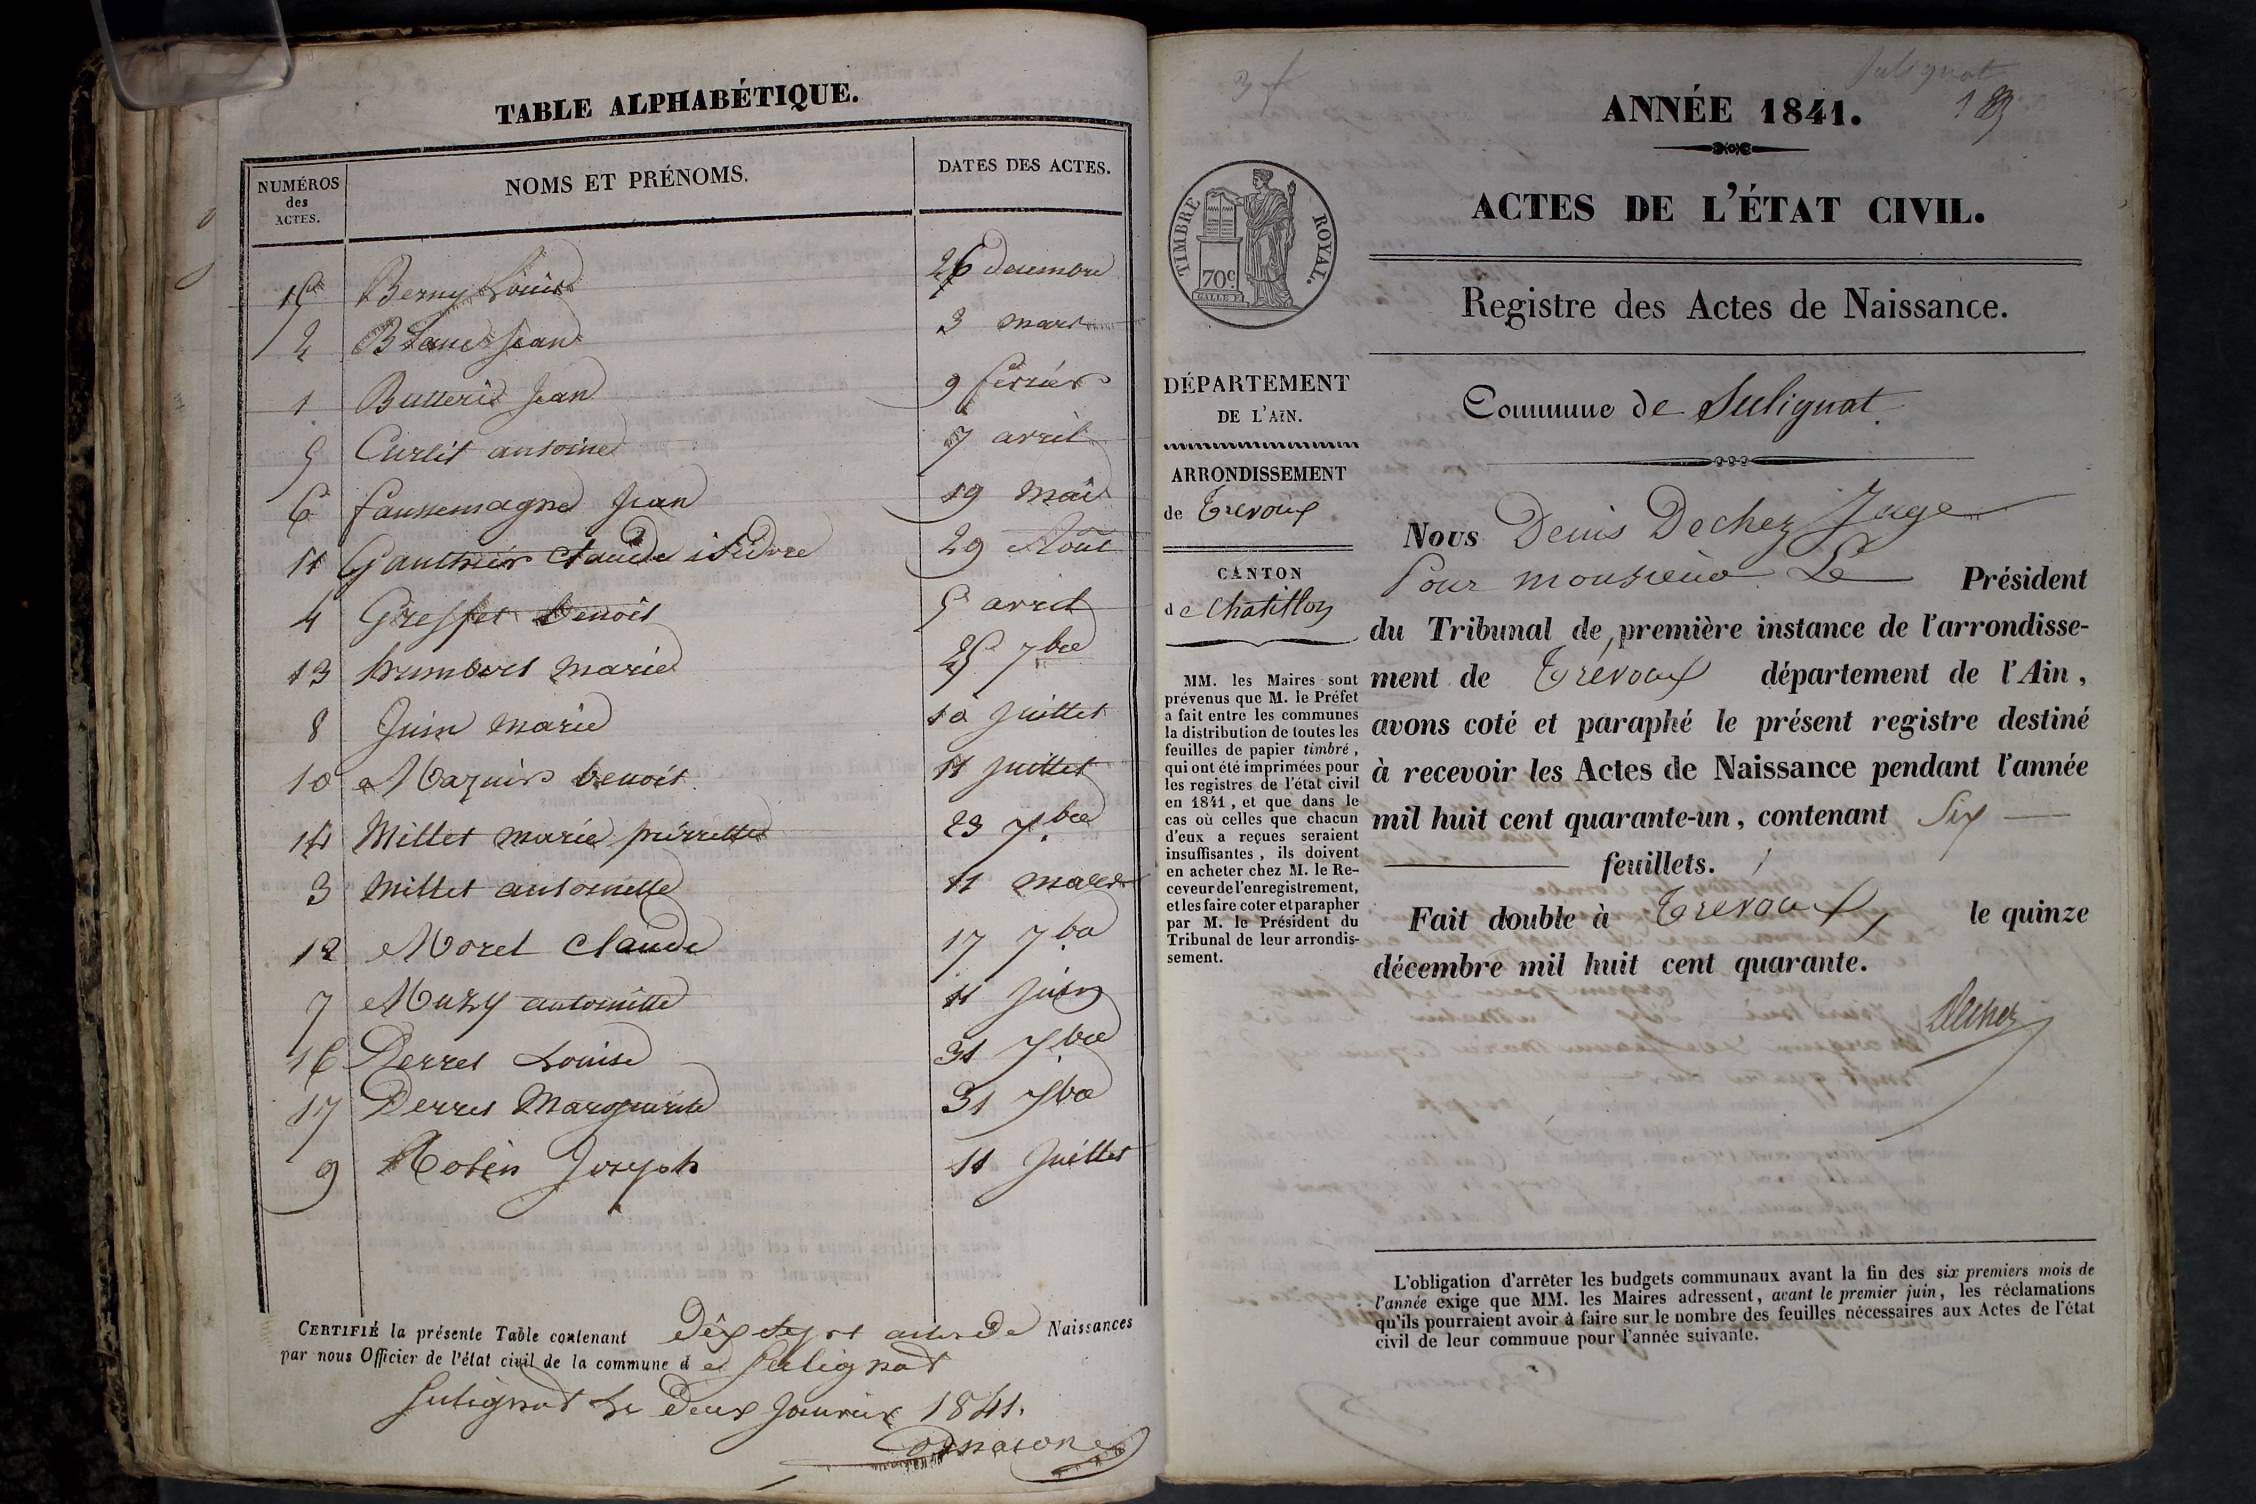 TABLE ALPHABÉTIQUE.
NUMÉROS
des
ACTES.
NOMS ET PRÉNOMS.
DATES DES ACTES.
15 Berny Louis 26 decembre
2 Blanc Jean 3 mars
1 Butterin Jean 9 février
5 Curlit antoine 7 avril
6 faussemagne Jean 19 mai
11 Gauthier Claude isidore 29 Août
4 Greffet benoit 5 avril
13 humbert marie 25 7bre
8 Juin marie 10 juillet
10 Mazuir benoit 11 juillet
14 Millet marie pierrette 23 7bre
3 Millet antoinette 11 mars
12 Morel Claude 17 7bre
7 Muzy antoinette 11 juin
16 Perret Louise 31
17 Perret Marguerite 31
9 Robin Joseph 11 Juillet
CERTIFIÉ la présente Table contenant dix sept actes de Naissances
par nous Officier de l'état civil de la commune de Sulignat
Sulignat le deux Janvier 1841.
Sulignat
ANNÉE 1841.
ACTES DE L'ÉTAT CIVIL.
TIMBRE ROYAL.
70c
Registre des Actes de Naissance.
Commune de Sulignat
DÉPARTEMENT
DE L'AIN.
ARRONDISSEMENT
de Trevoux
CANTON
de Chatillon
MM. les Maires sont
prévenus que M. le Préfet
a fait entre les communes
la distribution de toutes les
feuilles de papier timbré,
qui ont été imprimées pour
les registres de l'état civil
en 1841, et que dans le
cas où celles que chacun
d'eux a reçues seraient
insuffisantes, ils doivent
en acheter chez M. le Re-
ceveur de l'enregistrement,
et les faire coter et parapher
par M. le Président du
Tribunal de leur arrondis-
sement.
Nous Denis Dechez Juge
Pour monsieur Le Président
du Tribunal de première instance de l'arrondisse-
ment de Trévoux département de l'Ain,
avons coté et paraphé le présent registre destiné
à recevoir les Actes de Naissance pendant l'année
mil huit cent quarante-un, contenant Six
feuillets.
Fait double à Trevoux, le quinze
décembre mil huit cent quarante.
Dechez
L'obligation d'arrêter les budgets communaux avant la fin des six premiers mois de
l'année exige que MM. les Maires adressent, avant le premier juin, les réclamations
qu'ils pourraient avoir à faire sur le nombre des feuilles nécessaires aux Actes de l'état
civil de leur commune pour l'année suivante.